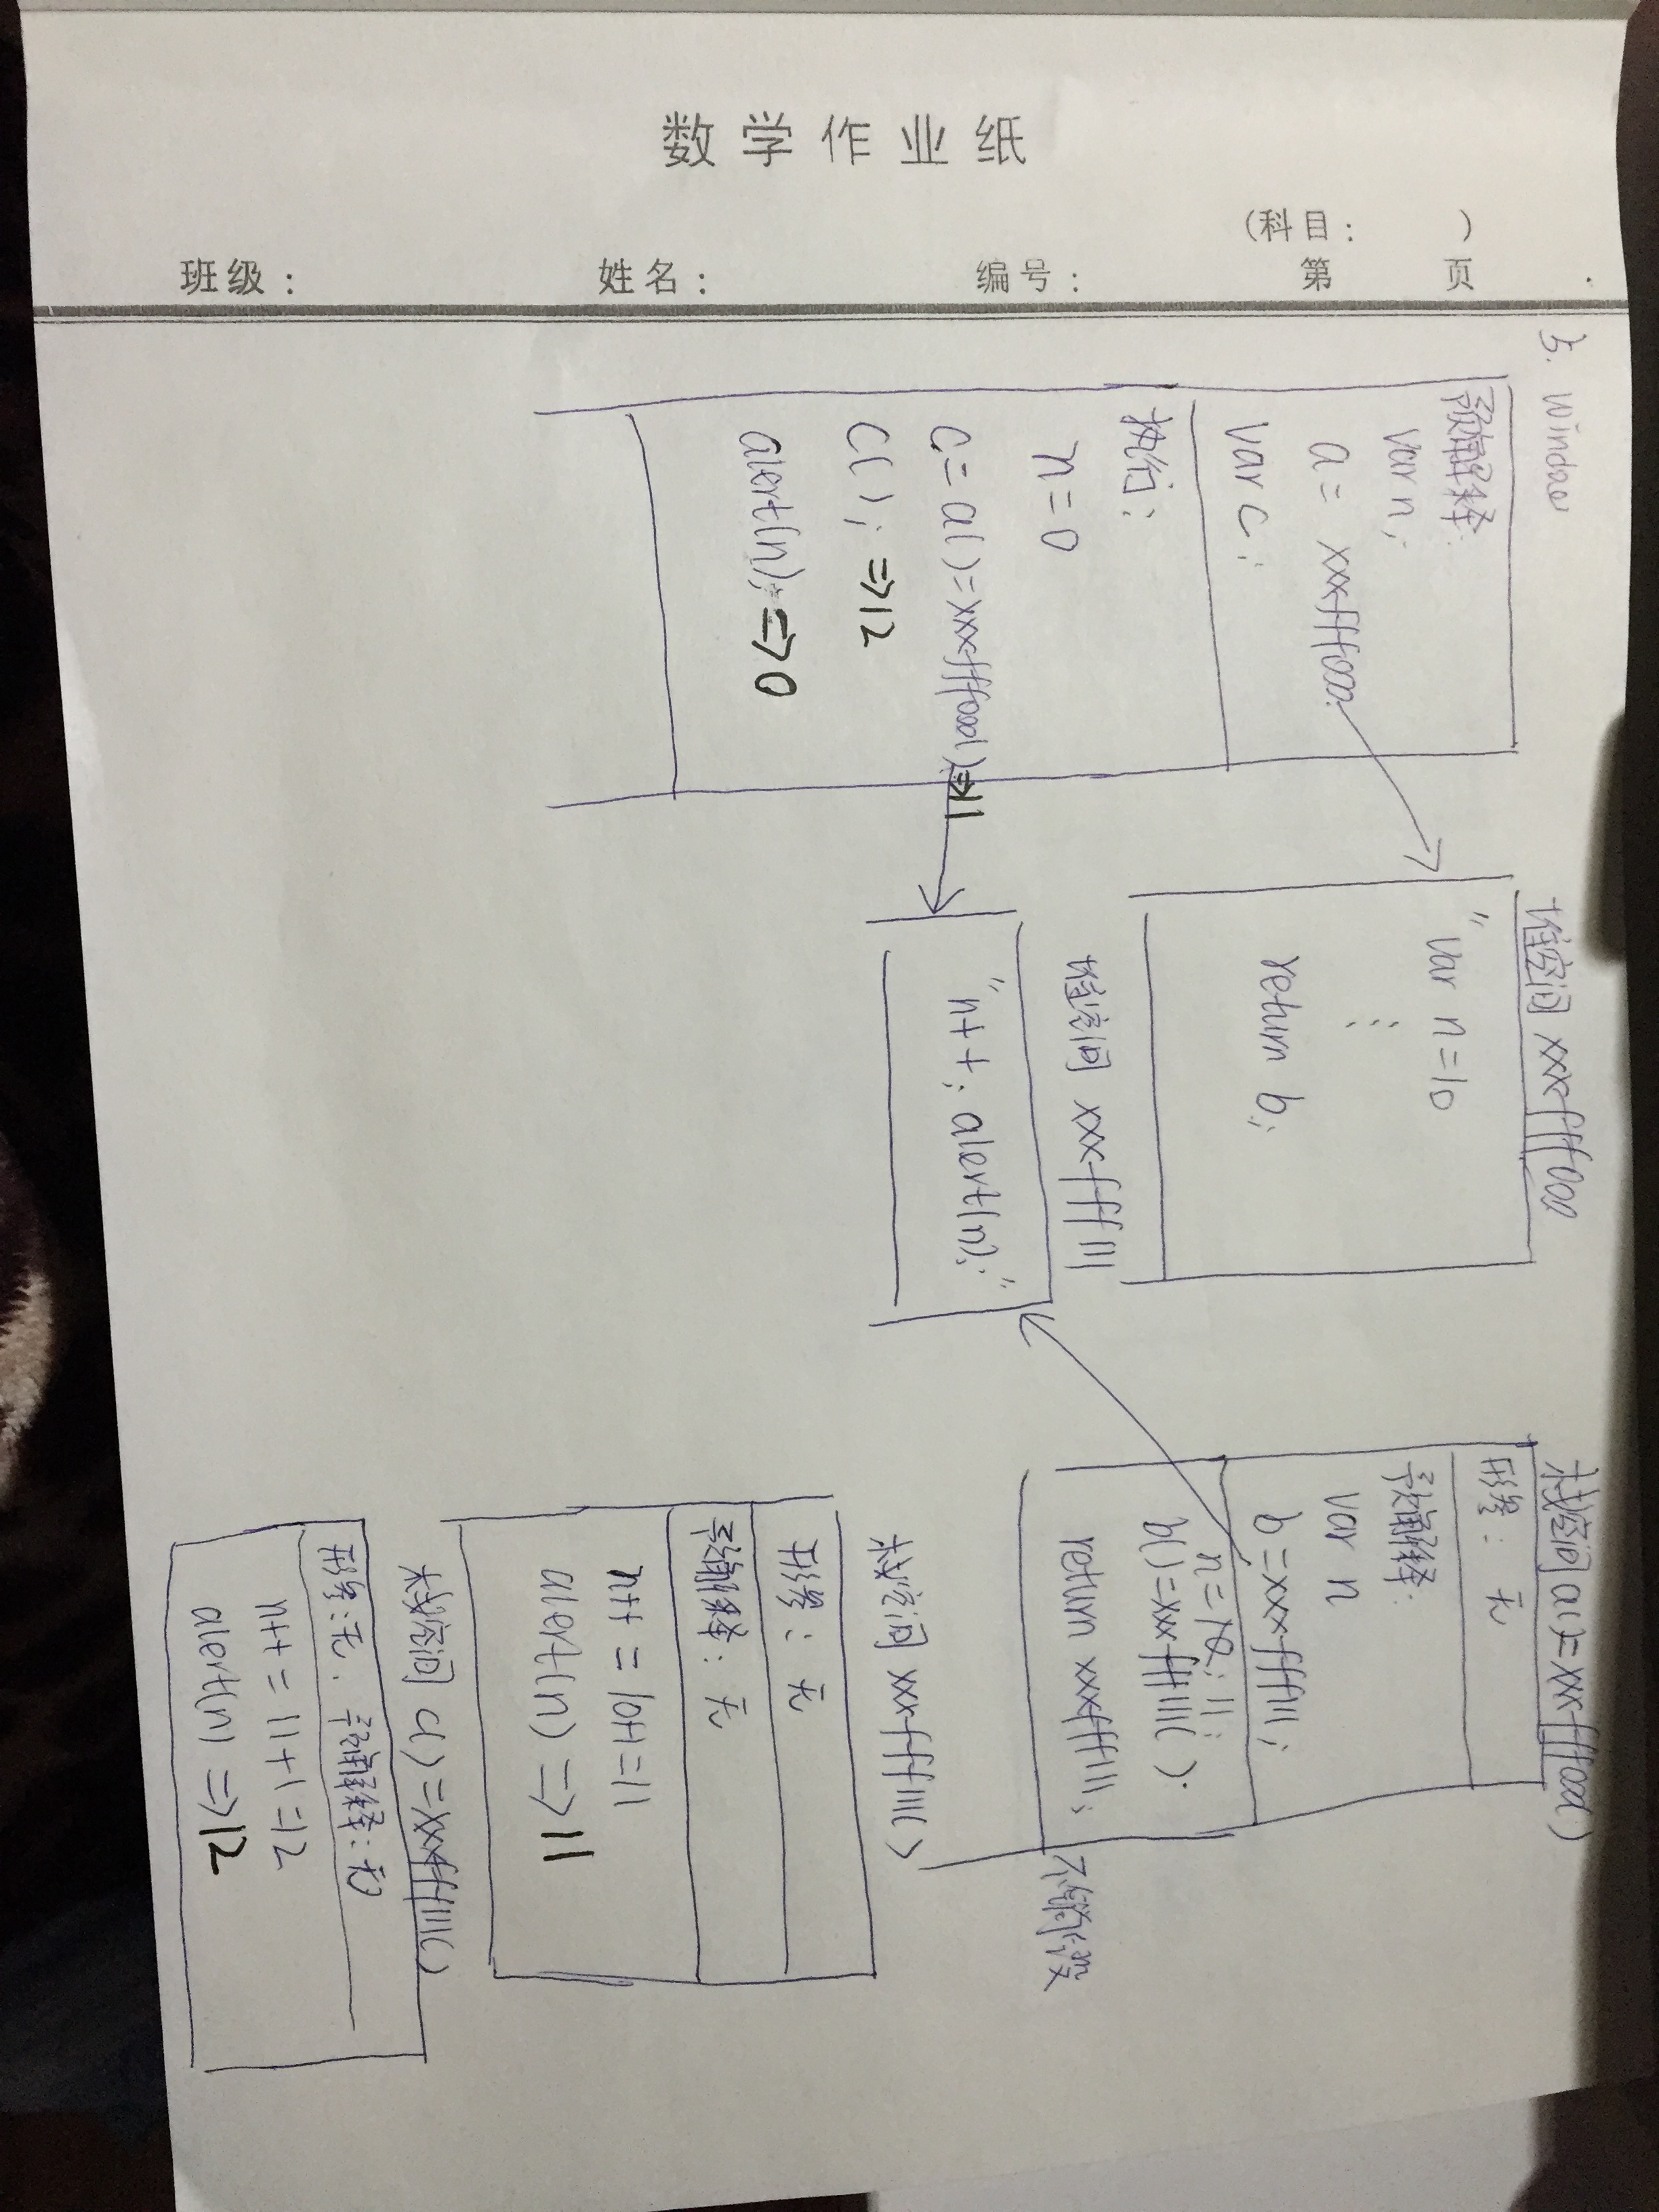 数学作业纸
(科目： )
班级： 姓名： 编号： 第 页
3. window
预解释:
var n;
a = xxxfff000;
var c;
执行:
n = 0
c = a() = xxxfff000() =>11
c(); =>12
alert(n); =>0
堆空间 xxxfff000
"var n=10
⋮
return b;
堆空间 xxxfff111
"n++; alert(n);"
栈空间 a()=xxxfff000()
形参: 无
预解释:
var n
b=xxxfff111;
n=10; 11;
b()=xxxfff111();
return xxxfff111;
不销毁
栈空间 xxxfff111()
形参: 无
预解释: 无
n++ = 10+1=11
alert(n) =>11
栈空间 c()=xxxfff111()
形参:无. 预解释:无
n++ = 11+1=12
alert(n) =>12